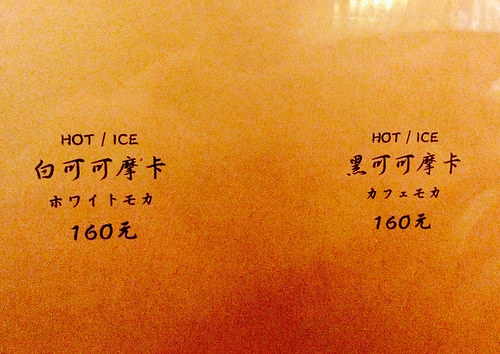 HOT / ICE
白可可摩卡
ホワイトモカ
160元
HOT / ICE
黑可可摩卡
カフェモカ
160元